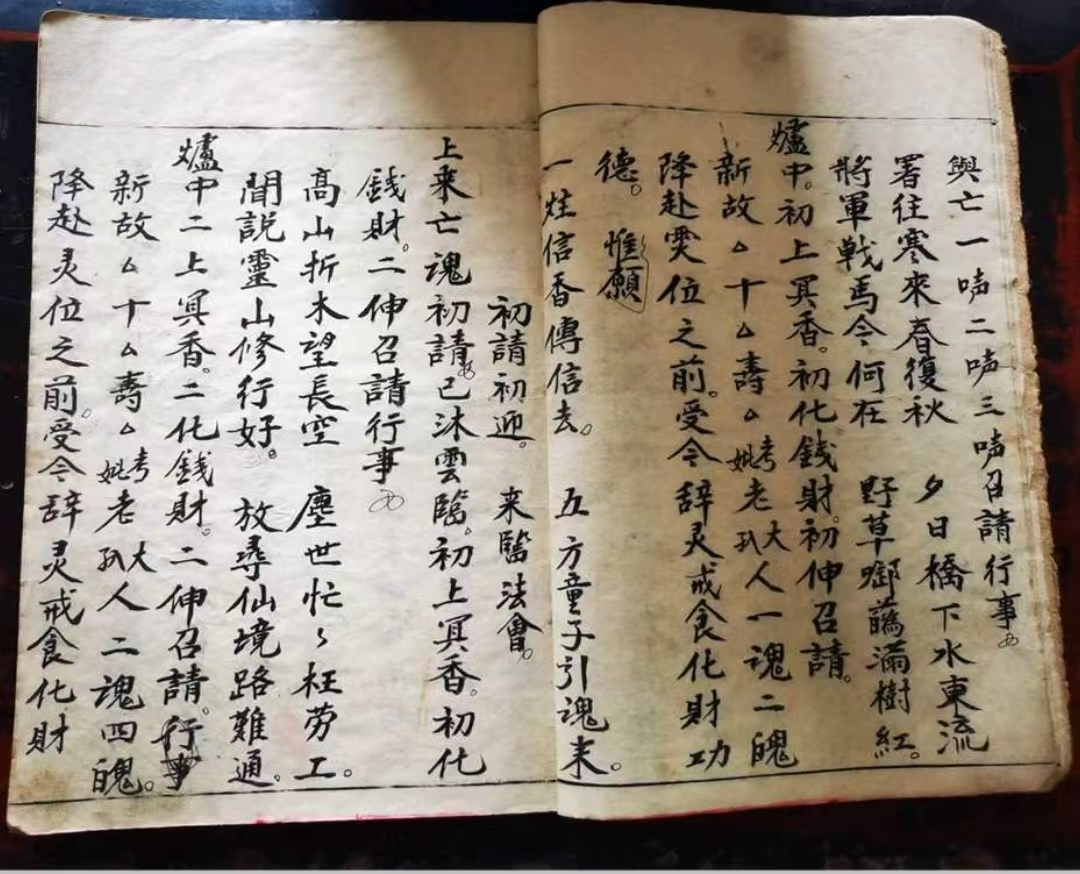 與亡一声二声三声召請行事
署往寒來春復秋 夕日橋下水東流
將軍戰馬今何在 野草啣蘤滿樹紅。
爐中。初上冥香。初化錢財。初伸召請。
新故△十△壽△考妣老大孔人一魂二魄
降赴灵位之前。受令辞灵戒食化財功
德。惟願
一炷信香傳信去。 五方童子引魂来。
初請初迎。来臨法會。
上来亡魂初請。已沐雲臨。初上冥香。初化
錢財。二伸召請行事
高山折木望長空 塵世忙〻枉劳工。
聞說靈山修行好。放尋仙境路難通。
爐中二上冥香。二化錢財。二伸召請。行事
新故△十△壽△考妣老大孔人二魂四魄。
降赴灵位之前。受令辞灵戒食化財